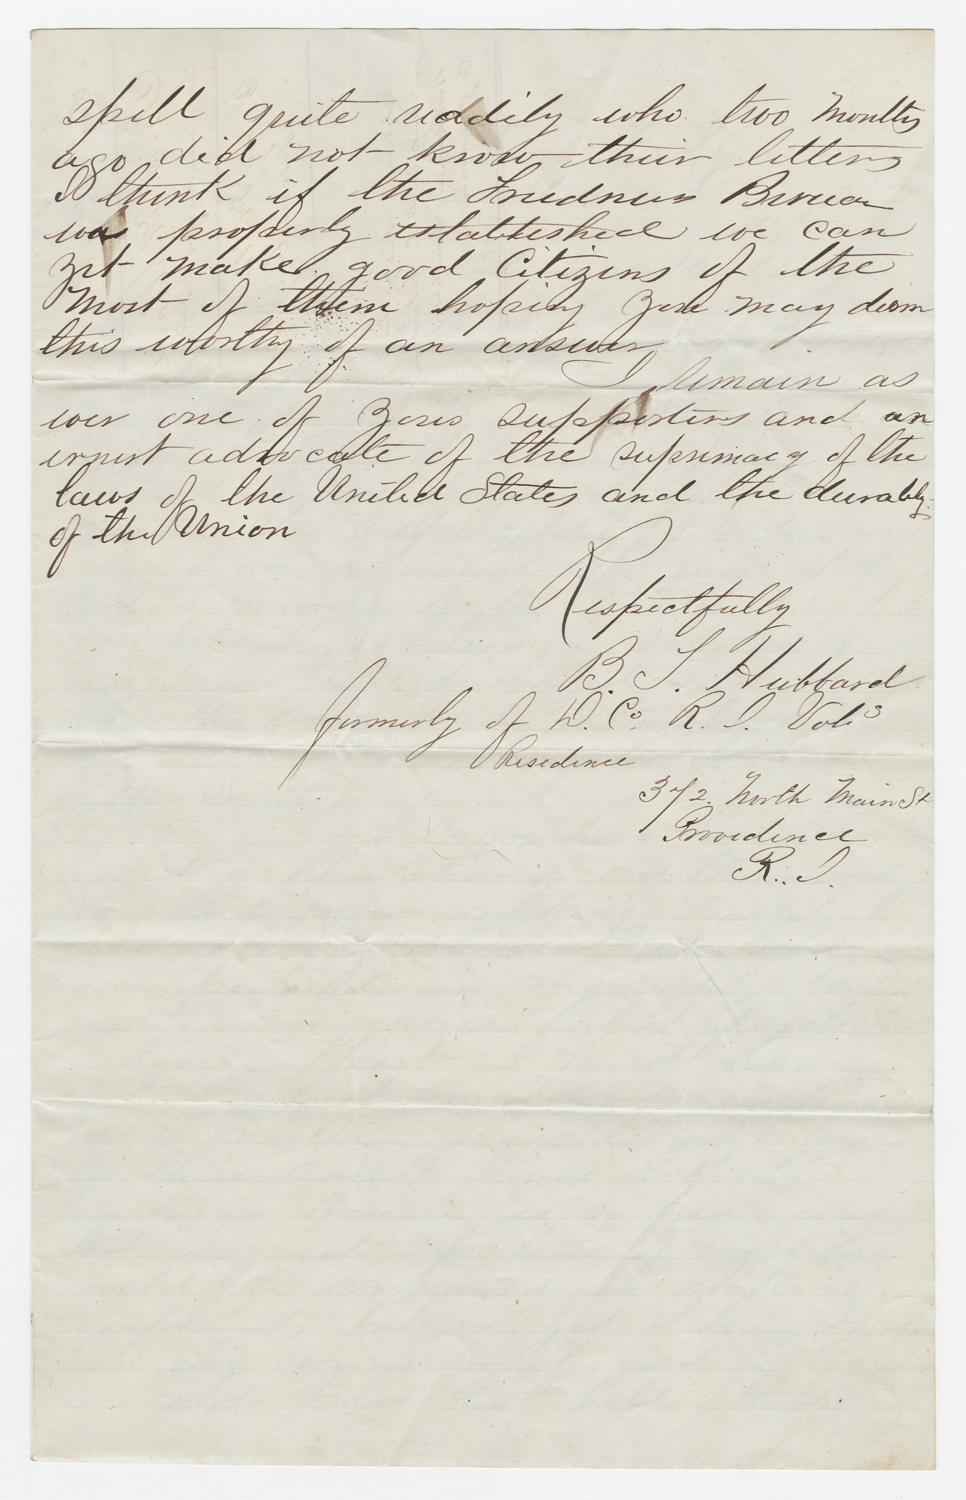 spell quite reddily who two Months
ago did not know their letters
I think if the Freedmens Bureau
was properly established we can
yet make good Citizens of the
Most of them hoping you may deem
this worthy of an answer
I remain as
ever one of your supporters and an
ernest advocate of the supremacy of the
laws of the United States and the durably
of the Union
Respectfully
B. S. Hubbard
formerly of D. Co. R. I. Vols
Residence
372. North Main St
Providence
R. I.